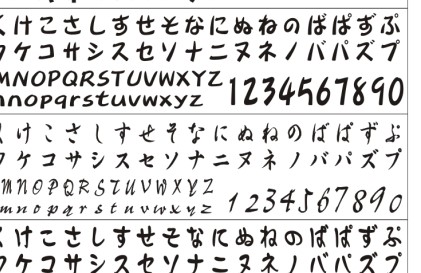 くけこさしすせそなにぬねのばぱずぷ
クケコサシスセソナニヌネノバパズプ
MNOPQRSTUVWXYZ 1234567890
mnopqrstuvwxyz
くけこさしすせそなにぬねのばぱずぷ
クケコサシスセソナニヌネノバパズプ
MNOPQRSTUVWXYZ 1234567890
mnopqrstuvwxyz
くけこさしすせそなにぬねのばぱずぷ
クケコサシスセソナニヌネノバパズプ